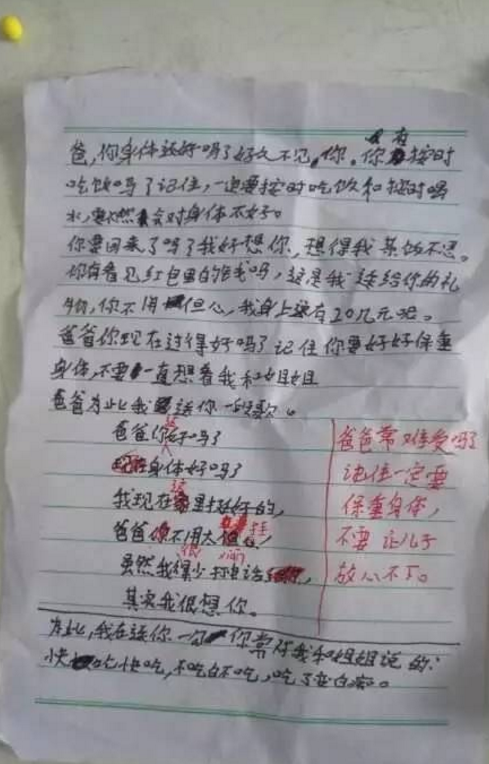 有
爸,你身体还好吗?好久不见,你。你按时
吃饭吗?记住,一定要按时吃饭和按时喝
水,要不然会对身体不好。
你要回来了吗?我好想你,想得我茶饭不思。
你有看见红包里的钱吗,这是我送给你的礼
物,你不用但心,我身上还有20几元呢。
爸爸你现在过得好吗?记住你要好好保重
身体,不要一直想着我和姐姐
爸爸为此我送你一段歌。
爸爸你还好吗?
现在身体好吗?
我现在家里挺好的,
爸爸你不用太挂心,
虽然我很少打电话给你,
其实我很想你。
爸爸常难受吗?
记住一定要
保重身体,
不要让儿子
放心不下。
为此,我在送你一份你常对我和姐姐说的:
快吃快吃,不吃白不吃,吃了变白痴。